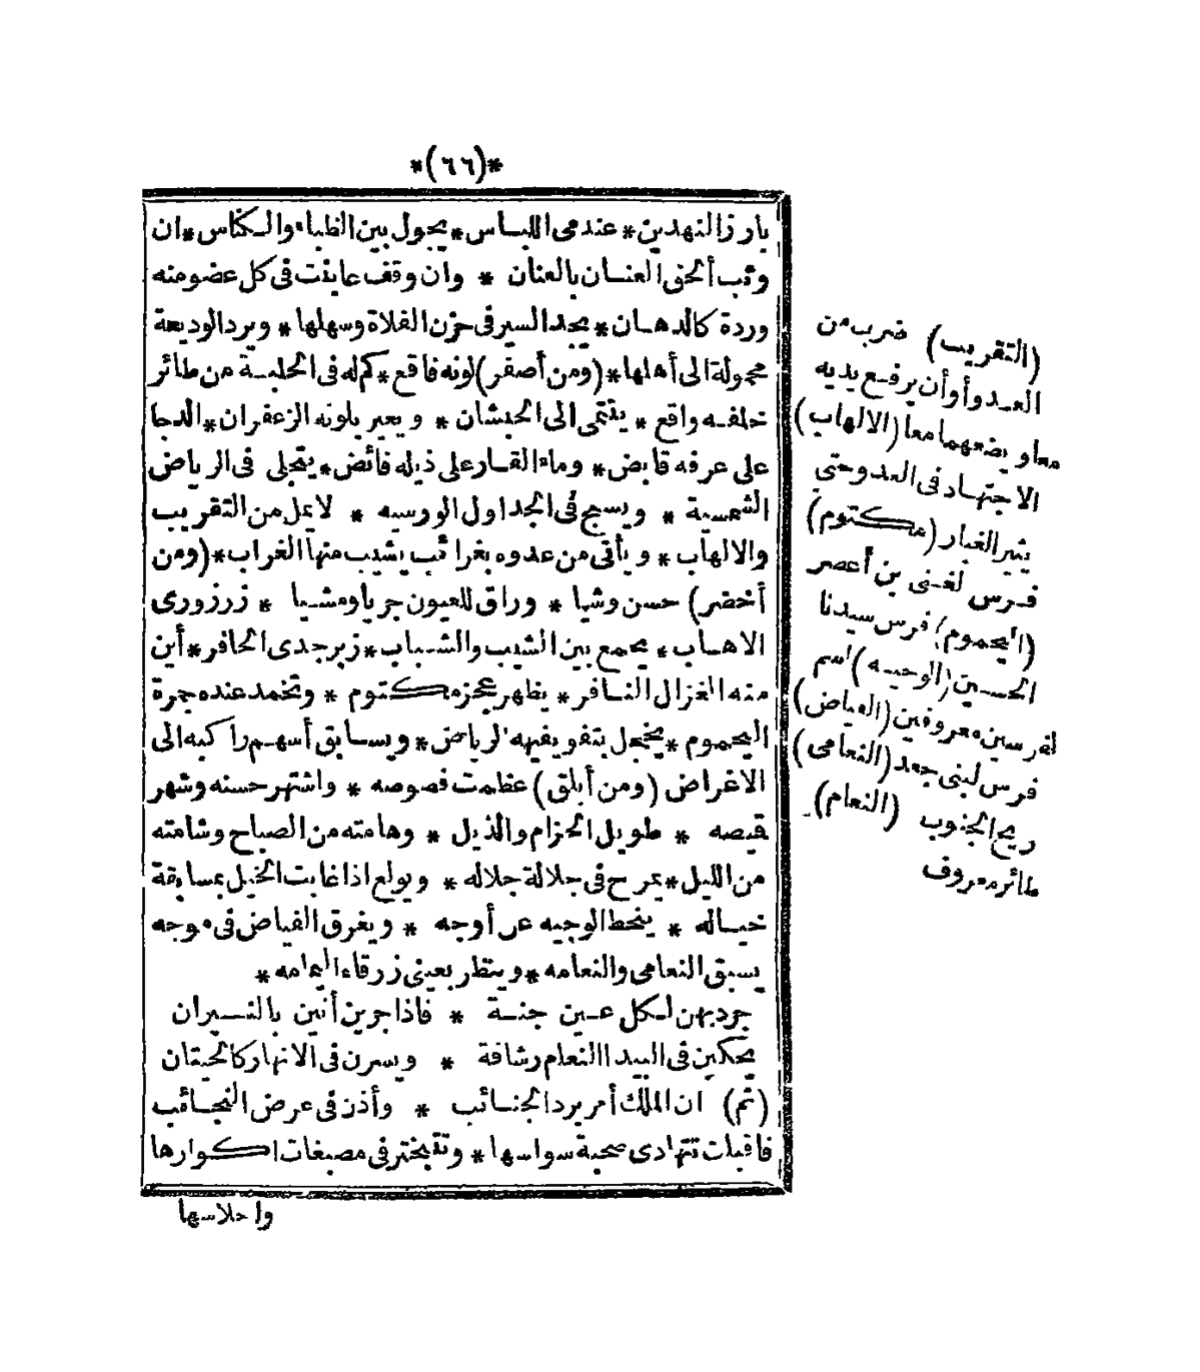 *(٦٦)*
بارز النهدين * عندمى اللباس * يجول بين الظباء والكناس * ان
وثب ألحق العنان بالعنان * وان وقف عاينت فى كل عضو منه
وردة كالدهان * يجد السير فى حزن الفلاة وسهلها * ويرد الوديعة
محمولة الى أهلها * (ومن أصفر) لونه فاقع * كم له فى الحلبة من طائر
خلفه واقع * ينتمى الى الحبشان * ويعير بلونه الزعفران * الدجا
على عرفه قابض * وماء القار على ذيله فائض * يتجلى فى الرياض
الشمسية * ويسبح فى الجداول الورسيه * لا يمل من التقريب
والالهاب * ويأتى من عدوه بغرائب يشيب منها الغراب * (ومن
أخضر) حسن وشيا * وراق للعيون جريا ومشيا * زرزورى
الاهاب * يجمع بين الشيب والشباب * زبرجدى الحافر * أين
منه الغزال النافر * يظهر عجز مكتوم * وتخمد عنده جمرة
اليحموم * يخجل بتفويفه الرياض * ويسابق أسهم راكبه الى
الاغراض (ومن أبلق) عظمت فصوصه * واشتهر حسنه وشهر
قيصه * طويل الحزام والذيل * وهامته من الصباح وشامته
من الليل * يمرح فى جلالة جلاله * ويولع اذا غابت الخيل بمسابقة
خياله * ينحط الوجيه عن أوجه * ويغرق الفياض فى موجه
يسبق النعامى والنعامه * وينظر بعينى زرقاء اليمامه *
جرد بهن لكل عين جنة * فاذا جرين أتين بالنيران
يحكين فى البيدا النعام رشاقة * ويسرن فى الانهار كالحيتان
(ثم) ان الملك أمر برد الجنائب * وأذن فى عرض النجائب
فاقبلت تتهادى صحبة سواسها * وتتبختر فى مصبغات اكوارها
واحلاسها
(التقريب) ضرب من
العدو أو أن يرفع يديه
معا ويضعهما معا (الالهاب)
الاجتهاد فى العدو حتى
يثير الغبار (مكتوم)
فرس لغنى بن أعصر
(اليحموم) فرس سيدنا
الحسين (الوجيه) اسم
لفرسين معروفين (الفياض)
فرس لبنى جعد (النعامى)
ريح الجنوب (النعام)
طائر معروف